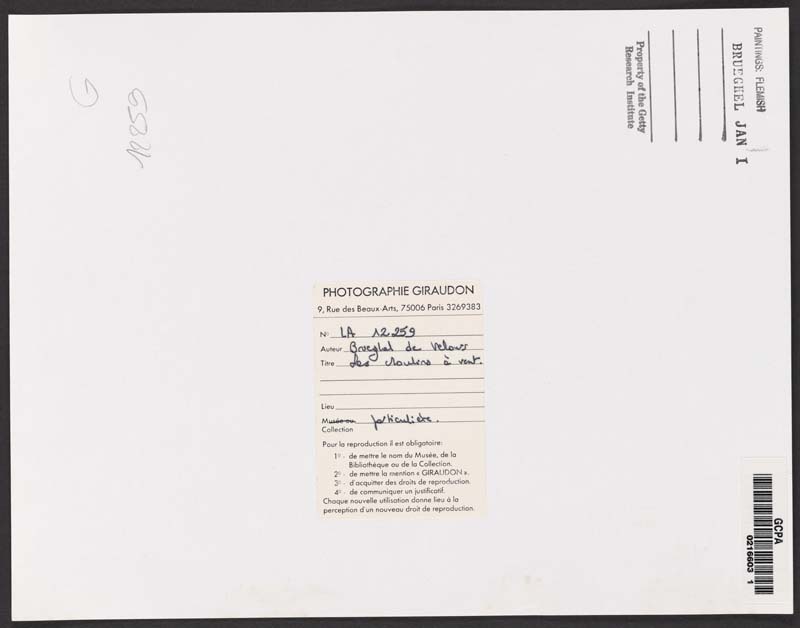 PAINTINGS: FLEMISH
BRUEGHEL JAN I
Property of the Getty
Research Institute
G
12259
PHOTOGRAPHIE GIRAUDON
9, Rue des Beaux-Arts, 75006 Paris 3269383
No LA 12.259
Auteur Brueghel de Velours
Titre Les Moulins à vent.
Lieu
Musée ou particulière.
Collection
Pour la reproduction il est obligatoire:
1o - de mettre le nom du Musée, de la
Bibliothèque ou de la Collection.
2o - de mettre la mention « GIRAUDON ».
3o - d'acquitter des droits de reproduction.
4o - de communiquer un justificatif.
Chaque nouvelle utilisation donne lieu à la
perception d'un nouveau droit de reproduction.
GCPA
0216603 1